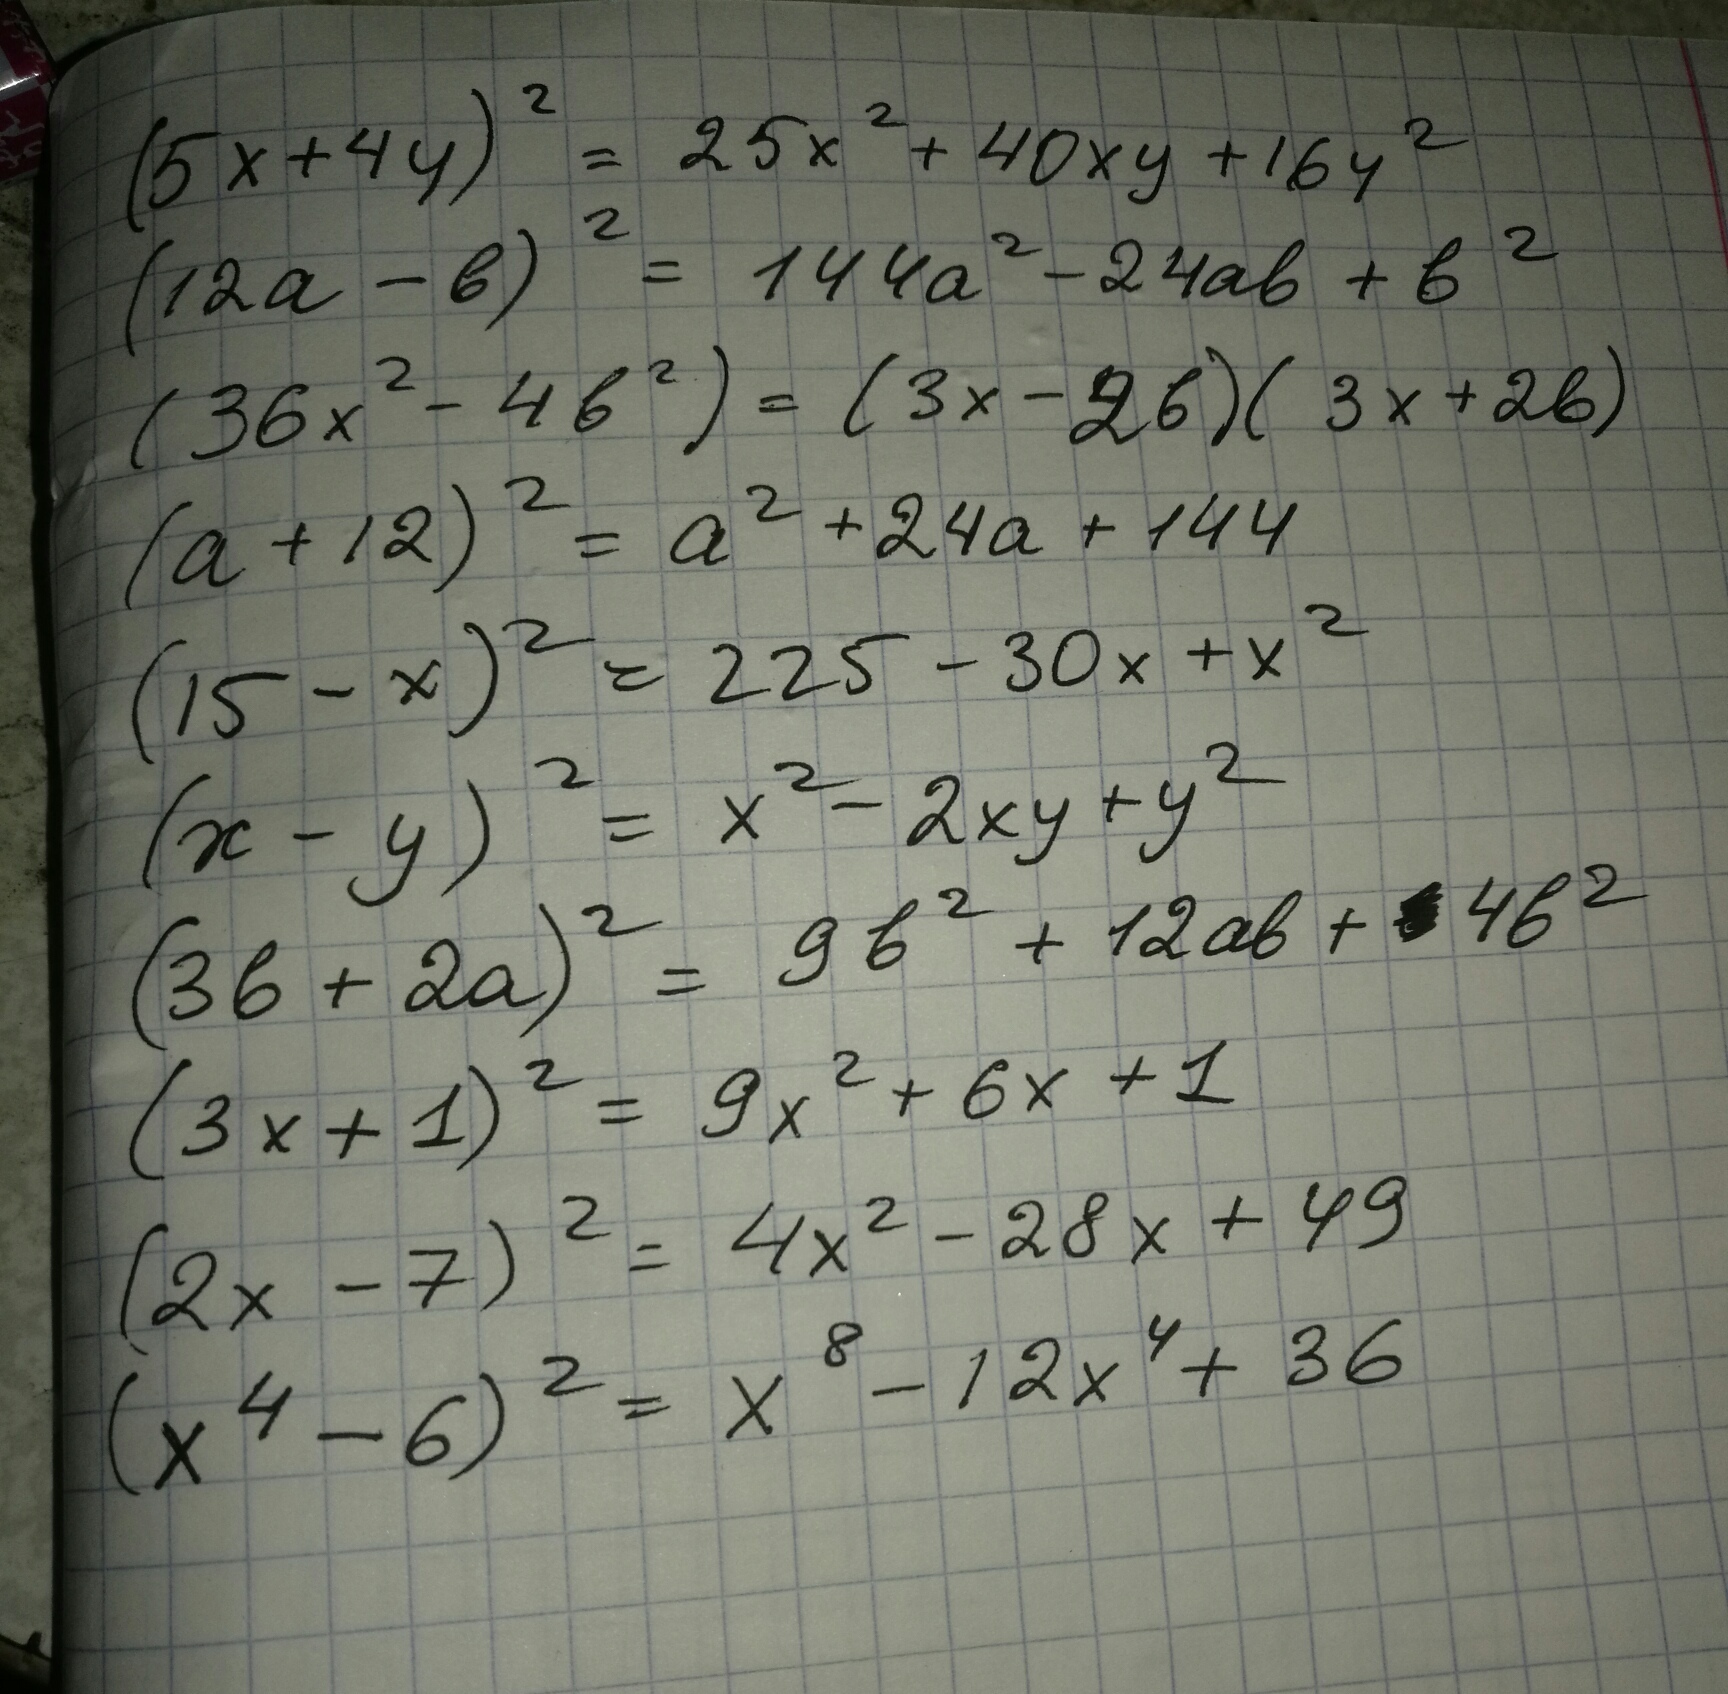 (5x+4y)² = 25x² + 40xy + 16y²
(12a - b)² = 144a² - 24ab + b²
(36x² - 4b²) = (3x - 2b)(3x + 2b)
(a + 12)² = a² + 24a + 144
(15 - x)² = 225 - 30x + x²
(x - y)² = x² - 2xy + y²
(3b + 2a)² = 9b² + 12ab + 4b²
(3x + 1)² = 9x² + 6x + 1
(2x - 7)² = 4x² - 28x + 49
(x⁴ - 6)² = x⁸ - 12x⁴ + 36